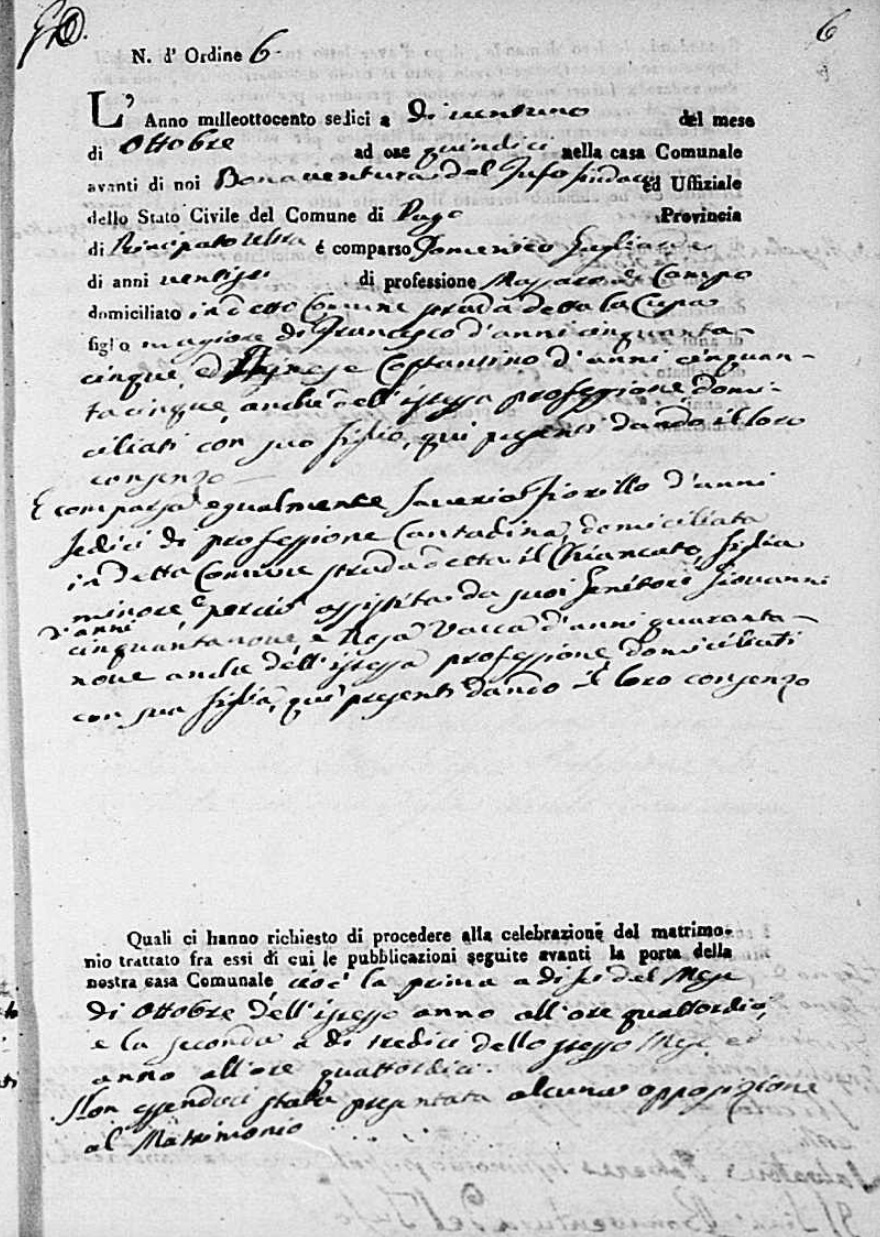 6
N. d' Ordine 6
L' Anno milleottocento sedici a di ventuno del mese
di Ottobre ad ore quindici nella casa Comunale
avanti di noi Bonaventura del Tufo Sindaco ed Uffiziale
dello Stato Civile del Comune di Pago Provincia
di Principato Ultra è comparso Domenico
di anni ventisei di professione Massaro di Campo
domiciliato in detto Comune strada detta la Cupa
figlio magiore di Francesco d'anni cinquanta-
cinque, ed Agnese Costantino d'anni cinquan-
tacinque, anche dell'istessa professione domi-
ciliati con suo figlio, qui presenti dando il loro
consenzo
E comparsa egualmente Saveria Fiorillo d'anni
sedici di professione Contadina, domiciliata
in detta Comune strada detta il Chiancato, figlia
minore e perciò assistita da suoi Genitori Giovanni
d'anni
cinquantanove e Rosa Vacca d'anni quaranta-
nove anche dell'istessa professione domiciliati
con sua figlia, qui presenti dando il loro consenzo
Quali ci hanno richiesto di procedere alla celebrazione del matrimo-
nio trattato fra essi di cui le pubblicazioni seguite avanti la porta della
nostra casa Comunale cioè la prima a di sei del Mese
di Ottobre dell'istesso anno all'ore quattordici,
e la seconda a di tredici dello stesso Mese ed
anno all'ore quattordici.
Non essendoci stata presentata alcuna opposizione
al Matrimonio